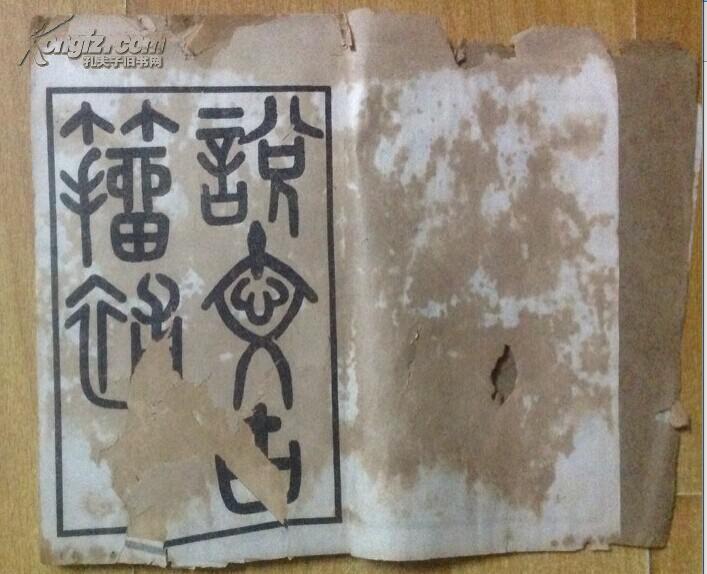 Kongfz.com
孔夫子旧书网
說文古
籀補